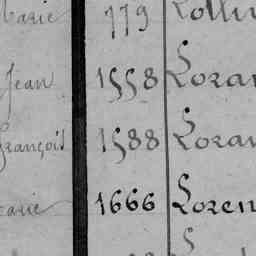 Marie 779 Lollu
Jean 1558 Loran
François 1588 Loran
Marie 1666 Loren